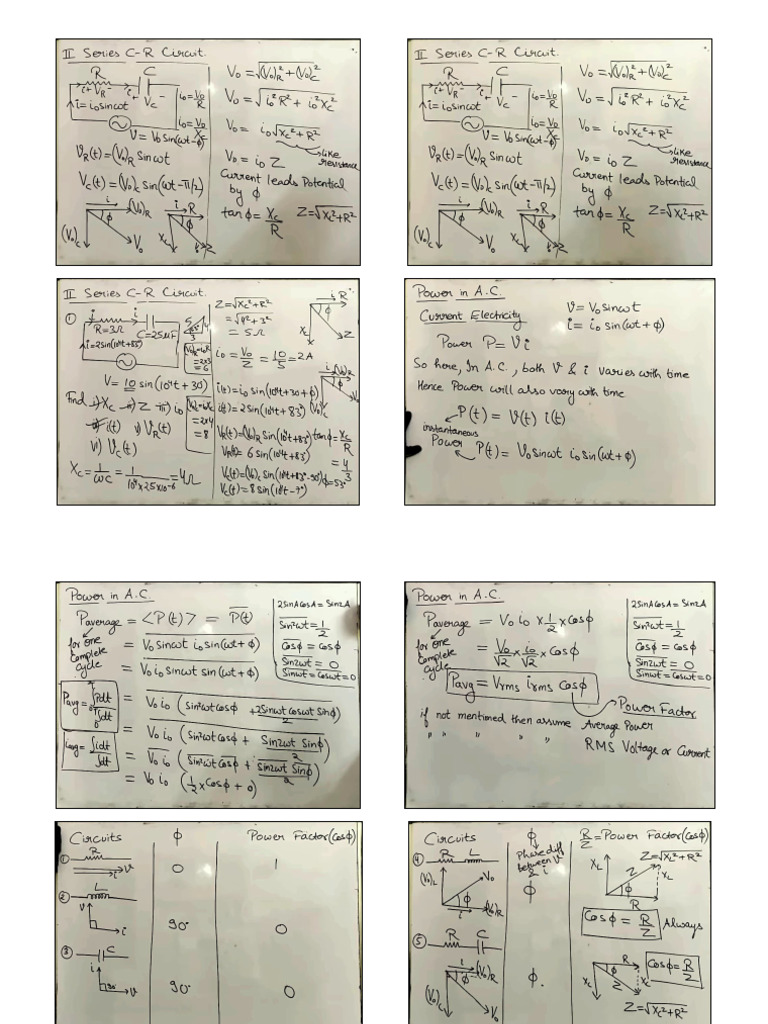 II Series C-R Circuit.
R C
i→ + VR - i→ + VC -
i = i₀sinωt
i₀ = V₀/R
i₀ = V₀/Xc
V = V₀ Sin(ωt-ϕ)
VR(t) = (V₀)R Sinωt
Vc(t) = (V₀)c Sin(ωt-π/2)
i (V₀)R i R
ϕ ϕ
(V₀)c V₀ Xc Z
V₀ = √((V₀)R² + (V₀)c²)
V₀ = √(i₀²R² + i₀²Xc²)
V₀ = i₀√(Xc²+R²)
like resistance
V₀ = i₀ Z
Current leads Potential
by ϕ
tanϕ = Xc/R Z = √(Xc²+R²)
II Series C-R Circuit.
R C
i→ + VR - i→ + VC -
i = i₀sinωt
i₀ = V₀/R
i₀ = V₀/Xc
V = V₀ Sin(ωt-ϕ)
VR(t) = (V₀)R Sinωt
Vc(t) = (V₀)c Sin(ωt-π/2)
i (V₀)R i R
ϕ ϕ
(V₀)c V₀ Xc Z
V₀ = √((V₀)R² + (V₀)c²)
V₀ = √(i₀²R² + i₀²Xc²)
V₀ = i₀√(Xc²+R²)
like resistance
V₀ = i₀ Z
Current leads Potential
by ϕ
tanϕ = Xc/R Z = √(Xc²+R²)
II Series C-R Circuit.
① i i
R=3Ω C=25μF
i = 2sin(10⁴t+83)
V = 10 sin(10⁴t+30)
Find i) Xc ii) Z iii) i₀
iv) i(t) v) VR(t)
vi) Vc(t)
Xc = 1/ωC = 1/(10⁴×25×10⁻⁶) = 4Ω
(V₀)R = i₀R
= 2×3
= 6
(V₀)c = i₀Xc
= 2×4
= 8
Z = √(Xc²+R²)
= √(4²+3²)
= 5Ω
i₀ = V₀/Z = 10/5 = 2A
i(t) = i₀ sin(10⁴t+30+ϕ)
i(t) = 2sin(10⁴t+83°)
VR(t) = (V₀)R Sin(10⁴t+83°)
VR(t) = 6 sin(10⁴t+83)
Vc(t) = (V₀)c Sin(10⁴t+83°-90°)
Vc(t) = 8 Sin(10⁴t-7°)
i R
ϕ
Xc Z
i (V₀)R
ϕ
(V₀)c V₀
tanϕ = Xc/R
= 4/3
ϕ = 53°
Power in A.C.
Current Electricity
V = V₀sinωt
i = i₀ sin(ωt+ϕ)
Power P = Vi
So here, In A.C., both V & i varies with time
Hence Power will also vary with time
P(t) = V(t) i(t)
instantaneous
Power
P(t) = V₀sinωt i₀sin(ωt+ϕ)
Power in A.C.
Paverage = <P(t)> = P̅(̅t̅)̅
for one
complete
cycle
= V₀sinωt i₀sin(ωt+ϕ)
= V₀i₀ sinωt sin(ωt+ϕ)
= V₀i₀ (sin²ωt cosϕ + 2sinωt cosωt sinϕ/2)
= V₀i₀ (Sin²ωt cosϕ + Sin2ωt Sinϕ/2)
= V₀i₀ (Sin²ωt Cosϕ + Sin2ωt Sinϕ/2)
= V₀i₀ (1/2 × Cosϕ + 0)
Pavg = ∫Pdt/∫dt
iavg = ∫idt/∫dt
2SinA CosA = Sin2A
Sin²ωt = 1/2
Cosϕ = cosϕ
Sin2ωt = 0
Sinωt = Cosωt = 0
Power in A.C.
Paverage = V₀i₀ × 1/2 × Cosϕ
for one
complete
cycle
= V₀/√2 × i₀/√2 × Cosϕ
Pavg = Vrms irms Cosϕ
Power Factor
if not mentimed then assume Average Power
" " " " " RMS Voltage or Current
2SinA CosA = Sin2A
Sin²ωt = 1/2
Cosϕ = cosϕ
Sin2ωt = 0
Sinωt = Cosωt = 0
Circuits ϕ Power Factor (Cosϕ)
① R
i V 0 1
② L
V i 90° 0
③ C
i 90° V 90° 0
Circuits ϕ R/Z = Power Factor (Cosϕ)
Phase diff
between V
& i
④ R L
(V₀)L V₀
ϕ
i (V₀)R
ϕ
XL Z = √(XL²+R²)
Z XL
ϕ
R
Cosϕ = R/Z Always
⑤ R C
i (V₀)R
ϕ
(V₀)c V₀
ϕ.
R
ϕ
Xc Z Xc
Cosϕ = R/Z
Z = √(Xc²+R²)